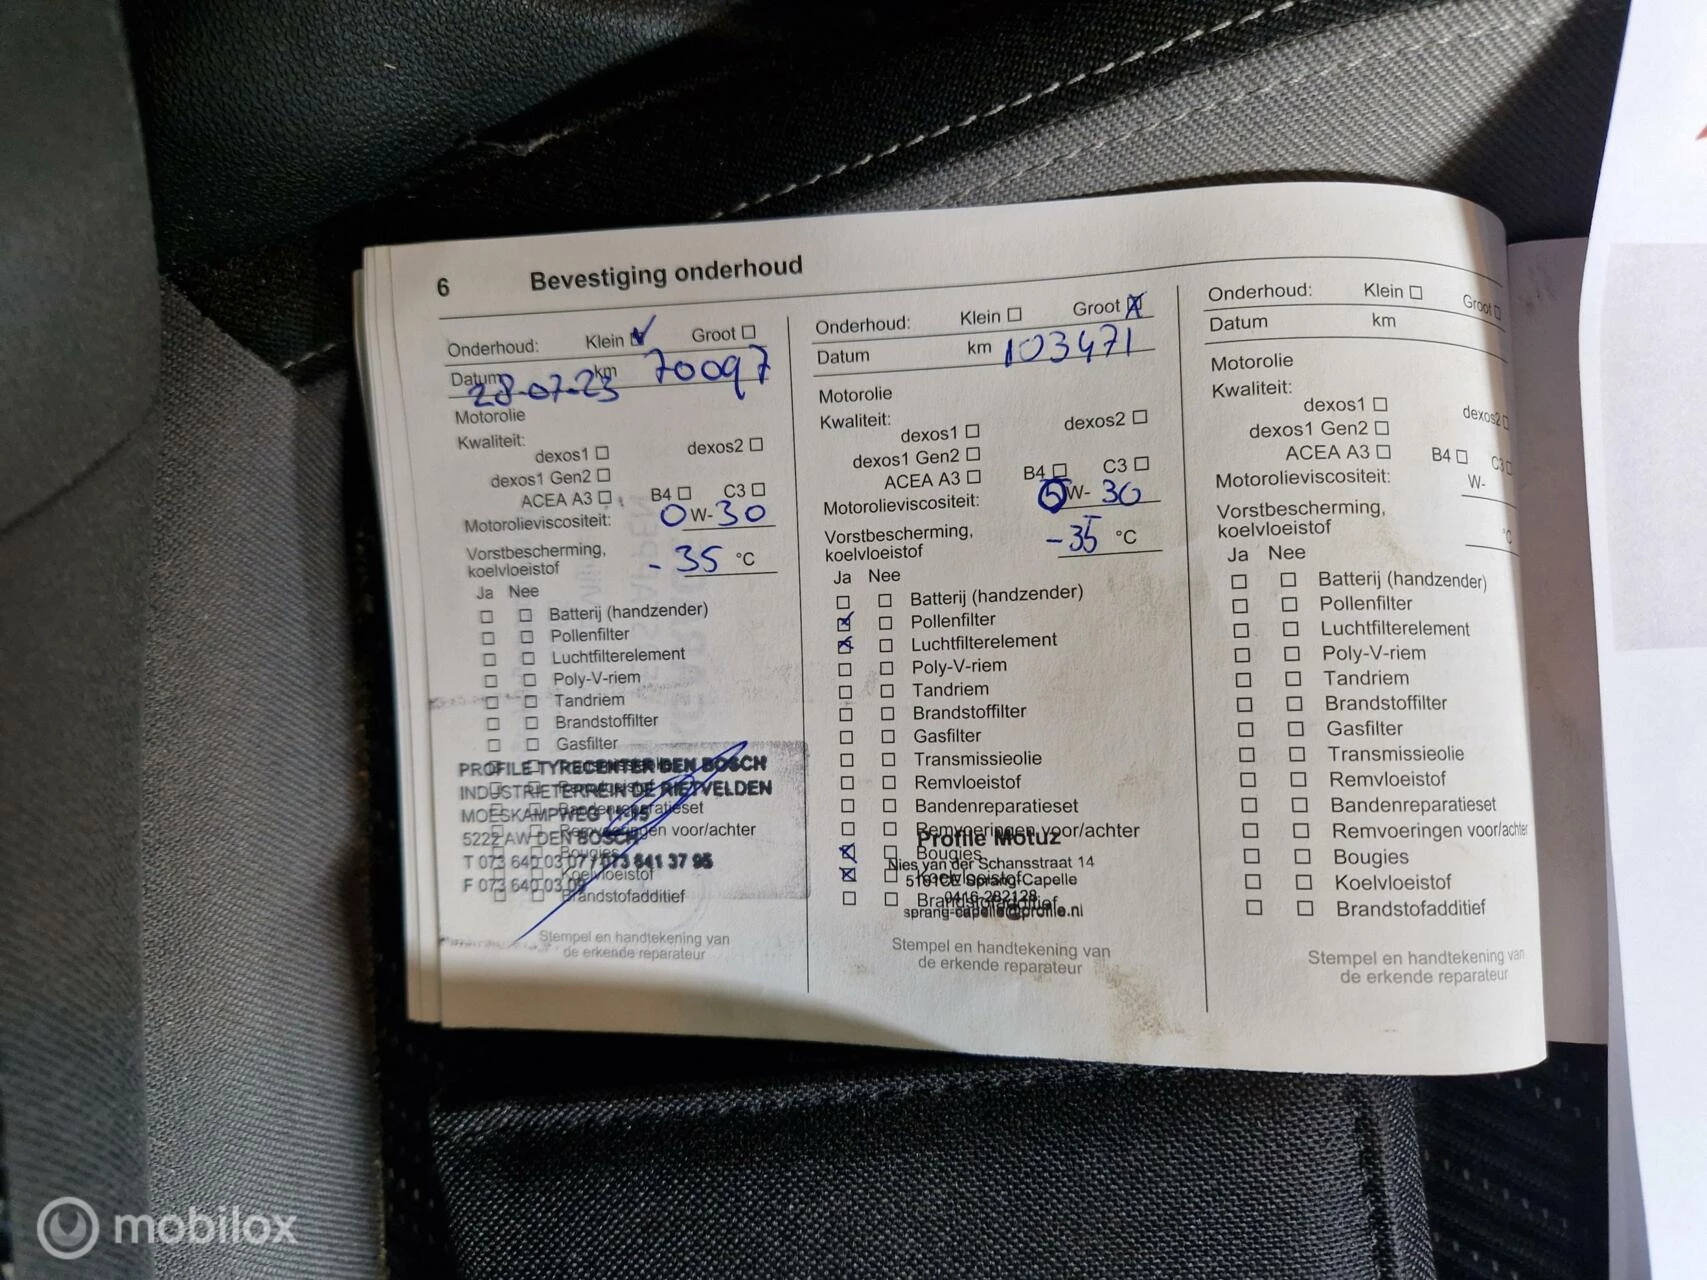 6 Bevestiging onderhoud
Onderhoud: Klein Groot
Datum 28-07-23 km 70097
Motorolie
Kwaliteit:
dexos1 dexos2
dexos1 Gen2
ACEA A3 B4 C3
Motorolieviscositeit: 0 W- 30
Vorstbescherming,
koelvloeistof - 35 °C
Ja Nee
Batterij (handzender)
Pollenfilter
Luchtfilterelement
Poly-V-riem
Tandriem
Brandstoffilter
Gasfilter
PROFILE TYRECENTER DEN BOSCH
INDUSTRIETERREIN DE RIETVELDEN
Bandenreparatieset
MOESKAMPWEG 11-15
Remvoeringen voor/achter
5222 AW DEN BOSCH
Bougies
T 073 640 03 07 / 073 641 37 95
Koelvloeistof
F 073 640 03 09
Brandstofadditief
Stempel en handtekening van
de erkende reparateur
Onderhoud: Klein Groot
Datum km 103471
Motorolie
Kwaliteit:
dexos1 dexos2
dexos1 Gen2
ACEA A3 B4 C3
Motorolieviscositeit: 5 W- 30
Vorstbescherming,
koelvloeistof - 35 °C
Ja Nee
Batterij (handzender)
Pollenfilter
Luchtfilterelement
Poly-V-riem
Tandriem
Brandstoffilter
Gasfilter
Transmissieolie
Remvloeistof
Bandenreparatieset
Remvoeringen voor/achter
Profile Motuz
Bougies
Nies van der Schansstraat 14
Koelvloeistof
5161CE Sprang-Capelle
0416-282128
Brandstofadditief
sprang-capelle@profile.nl
Stempel en handtekening van
de erkende reparateur
Onderhoud: Klein Groot
Datum km
Motorolie
Kwaliteit:
dexos1 dexos2
dexos1 Gen2
ACEA A3 B4 C3
Motorolieviscositeit: W-
Vorstbescherming,
koelvloeistof °C
Ja Nee
Batterij (handzender)
Pollenfilter
Luchtfilterelement
Poly-V-riem
Tandriem
Brandstoffilter
Gasfilter
Transmissieolie
Remvloeistof
Bandenreparatieset
Remvoeringen voor/achter
Bougies
Koelvloeistof
Brandstofadditief
Stempel en handtekening van
de erkende reparateur
mobilox